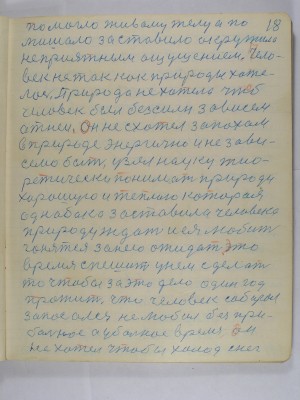 18
помогло живому телу а по
мешало заставило окружило
неприятным ощущением. Чело-
век не так как природы хоте-
лось. Природа не хотела чтоб
человек был бессилен зависем
от неи. Он не схотел запохам
в природе энергично и не зави-
семо быть, взял науку тио-
ретически понимат природу
хорошую и теплаю которая
однобако заставила человека
природу ждат и ея любит
гонятся за нею ожидат. Это
время спешит у нем сделат
то чтобы за это дело один год
прожит. что человек собрал
запас а лез не любил без при-
баное а убаное время он
не хотел чтобы холод снег